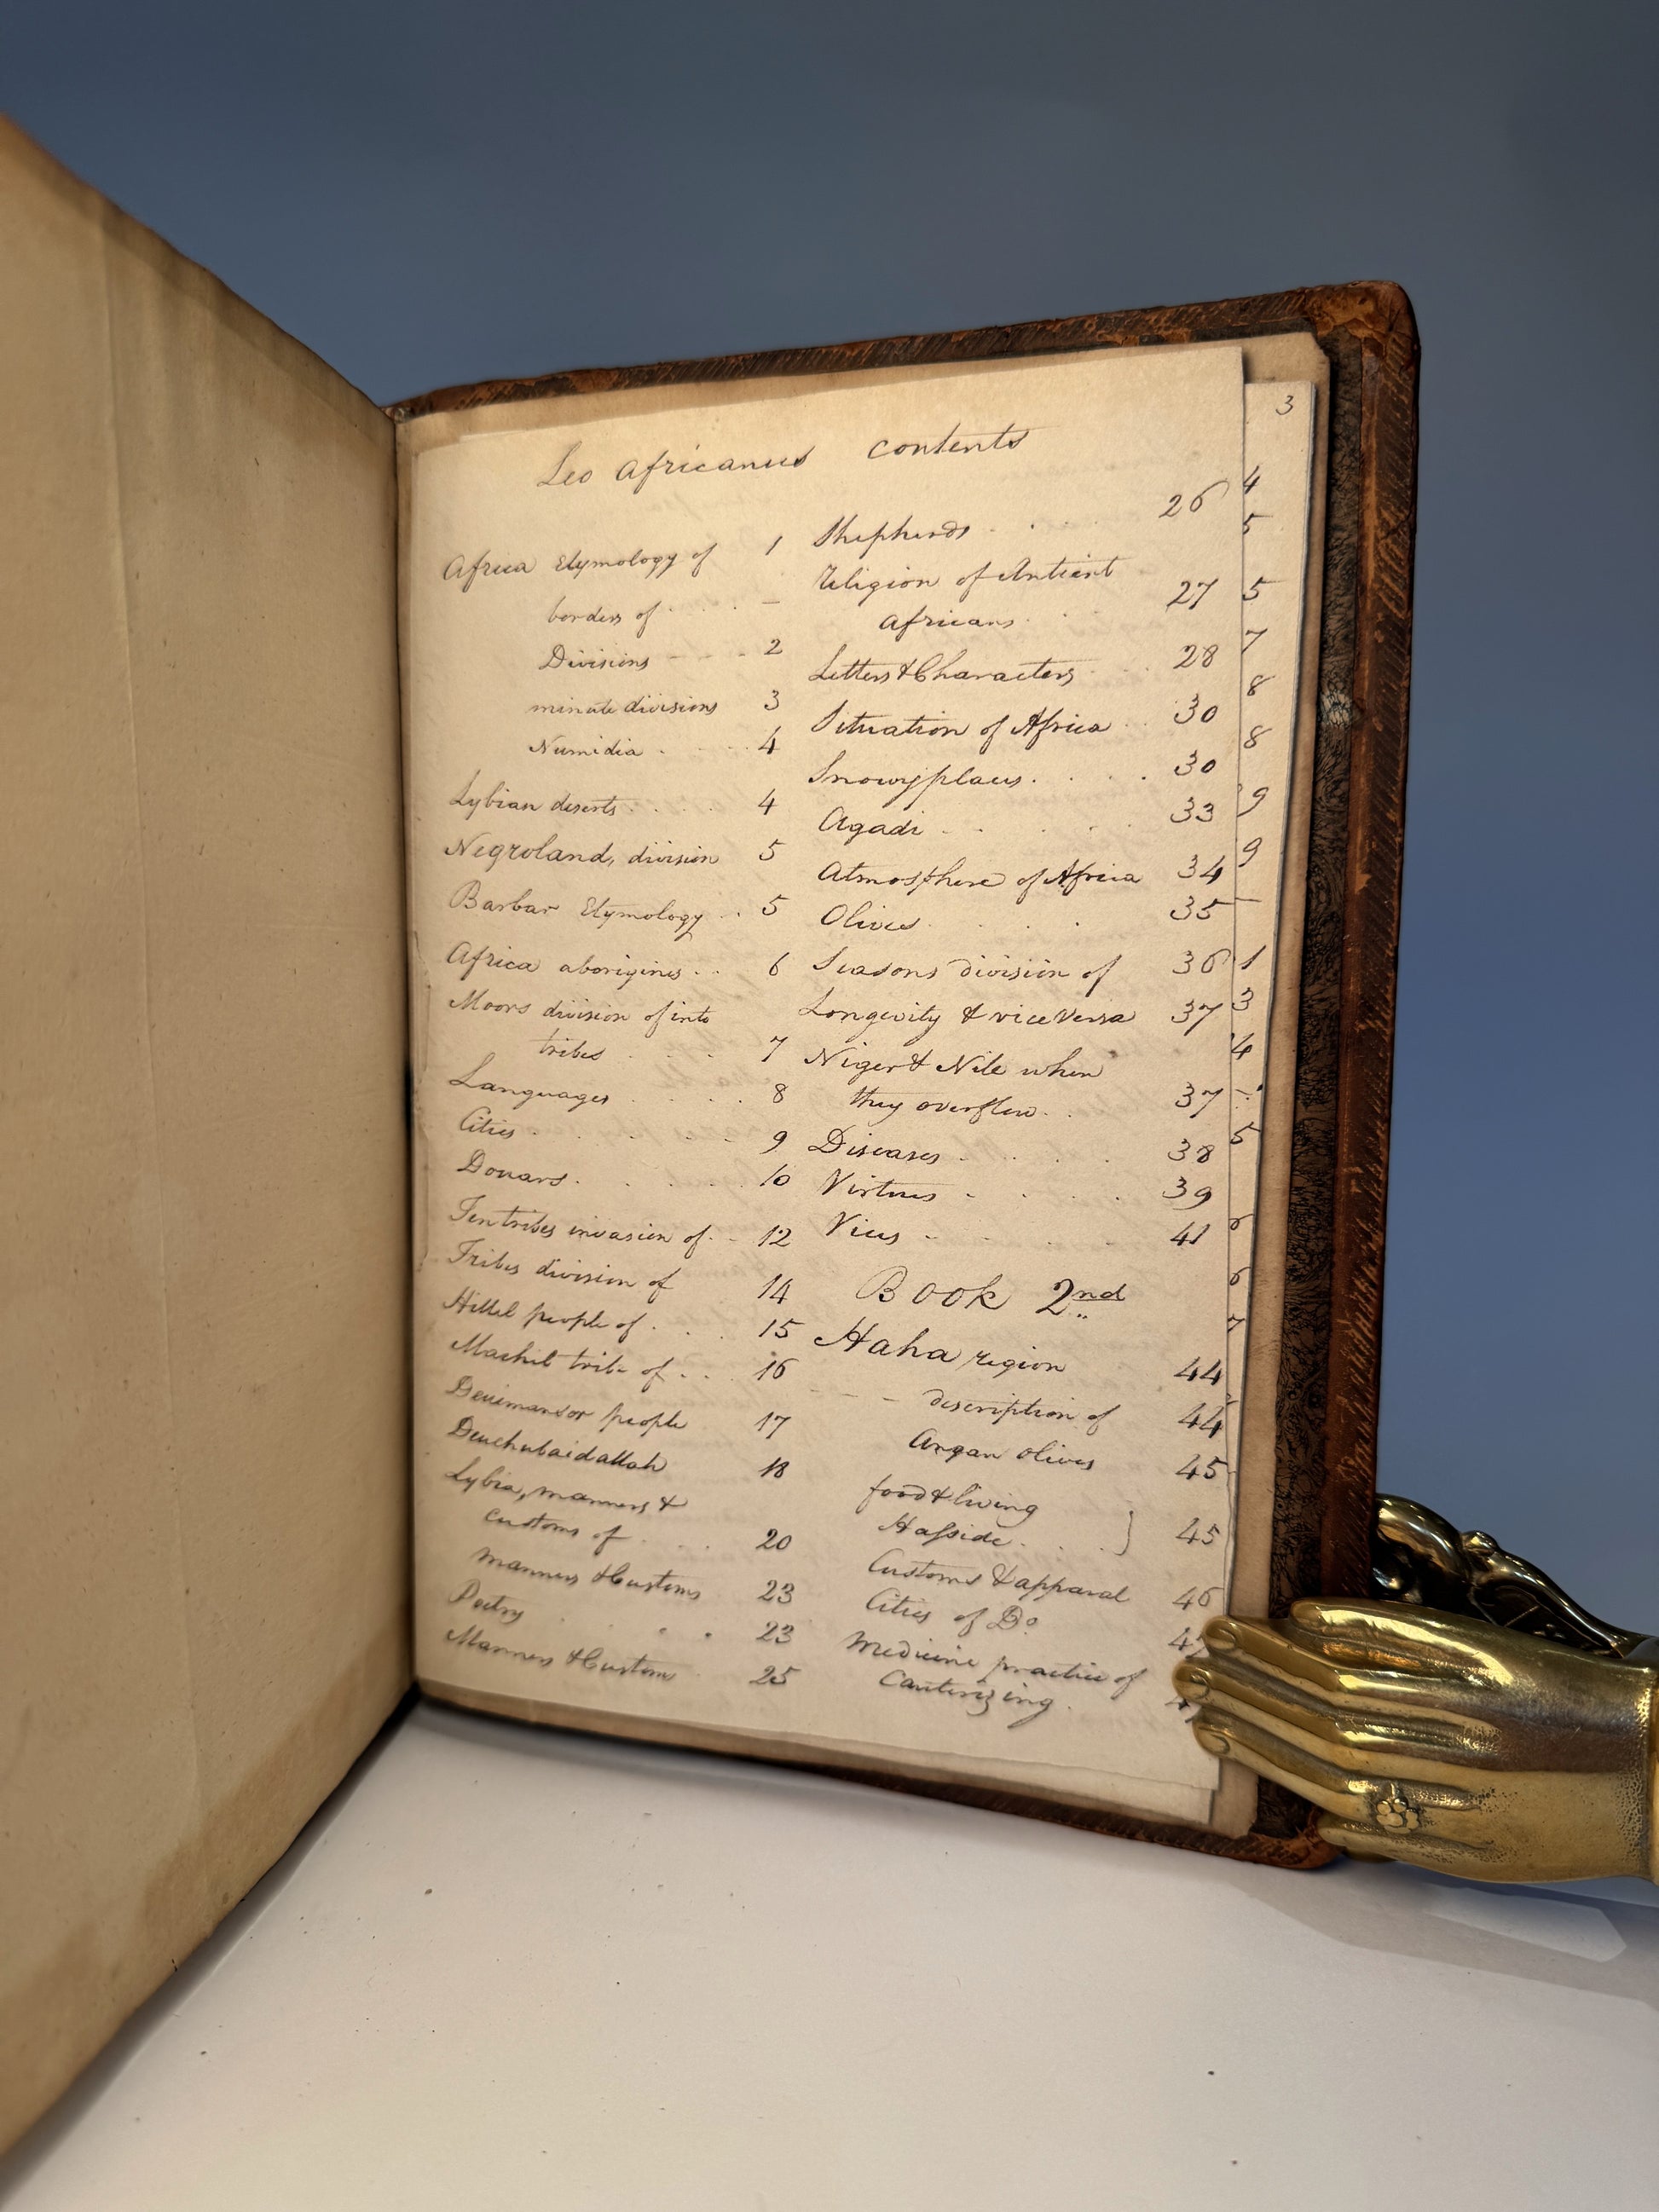 Leo Africanus contents
Africa Etymology of 1
borders of –
Divisions 2
minute divisions 3
Numidia 4
Lybian deserts 4
Negroland, division 5
Barbar Etymology 5
Africa aborigines 6
Moors division of into
tribes 7
Languages 8
Cities 9
Douars 10
Ten tribes invasion of 12
Tribes division of 14
Hillel people of 15
Machil tribe of 16
Devimansor people 17
Deuchubaidallah 18
Lybia, manners &
customs of 20
manners & Customs 23
Poetry 23
Manners & Custom 25
Shepherds 26
Religion of Antient
Africans 27
Letters & Characters 28
Situation of Africa 30
Snowy places 30
Agadi 33
Atmosphere of Africa 34
Olives 35
Seasons division of 36
Longevity & vice Versa 37
Niger & Nile when
they overflow 37
Diseases 38
Virtues 39
Vices 41
Book 2nd
Haha region 44
description of 44
Argan olives 45
food & living
Hasside 45
Customs & apparal 46
Cities of Do
Medicine practice of
Cauterizing
3
4
5
5
7
8
8
9
9
–
1
3
4
5
6
6
7